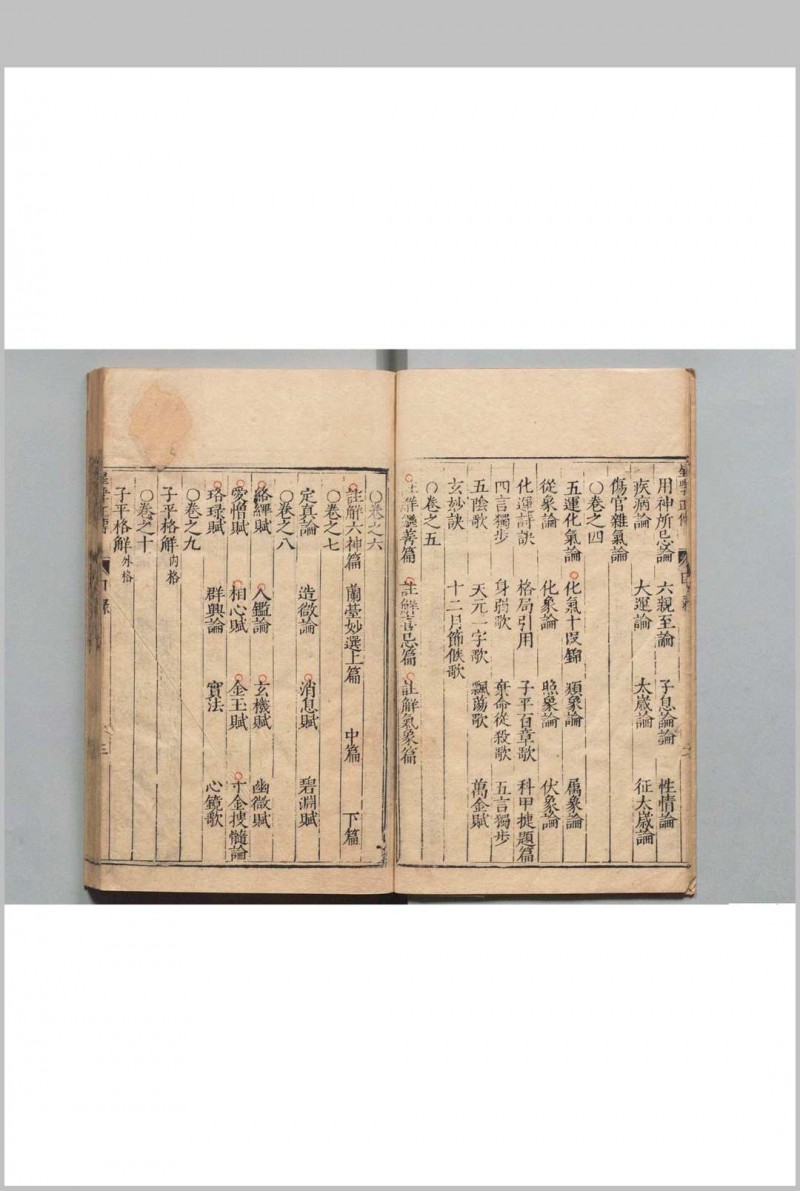 用神所忌論 六親至論 子息論論 性情論
疾病論 大運論 太歲論 征太歲論
傷官雜氣論
〇卷之四
五運化氣論 化氣十段錦 類象論 屬象論
從象論 化象論 照象論 伏象論
化運詩訣 格局引用 子平百章歌 科甲捷題篇
四言獨步 身弱歌 棄命從殺歌 五言獨步
五陰歌 天元一字歌 飄蕩歌 萬金賦
玄妙訣 十二月節候歌
〇卷之五
註解 善篇 註解 忌篇 註解氣象篇
〇卷之六
註解六神篇 蘭臺妙選上篇 中篇 下篇
〇卷之七
定真論 造微論 消息賦 碧淵賦
〇卷之八
絡繹賦 人鑑論 玄機賦 幽微賦
愛憎賦 相心賦 金玉賦 寸金搜髓論
珞琭賦 群興論 寶法 心鏡歌
〇卷之九
子平格解內格
〇卷之十
子平格解外格
目錄 三